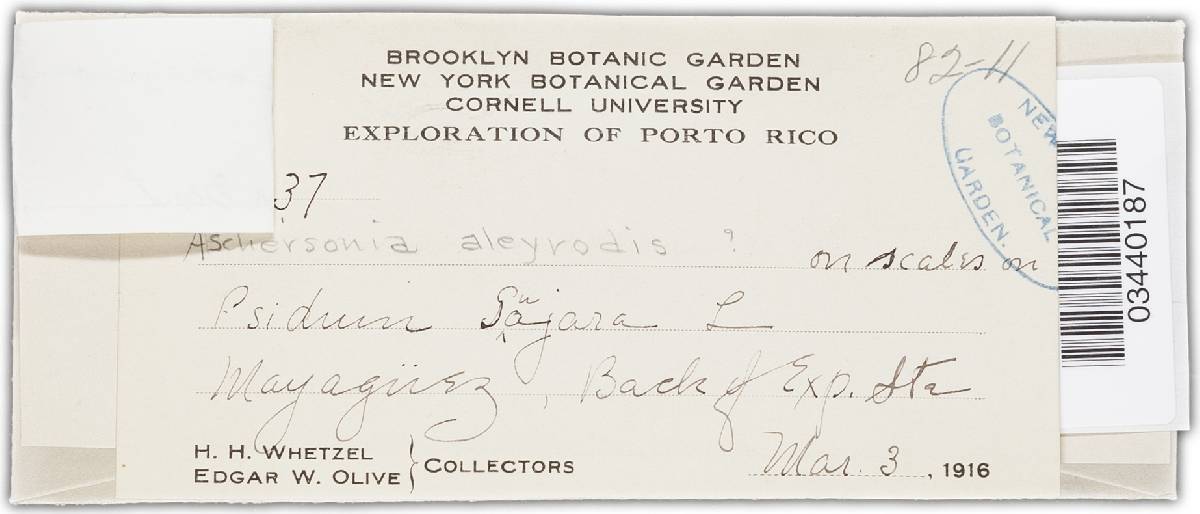 BROOKLYN BOTANIC GARDEN
NEW YORK BOTANICAL GARDEN
CORNELL UNIVERSITY
EXPLORATION OF PORTO RICO
82-11
NEW
BOTANICAL
GARDEN.
37
Aschersonia aleyrodis ?
on scales on
Psidium Guajara L
Mayagüez, Back of Exp. Sta
H. H. WHETZEL
EDGAR W. OLIVE } COLLECTORS
Mar. 3, 1916
03440187